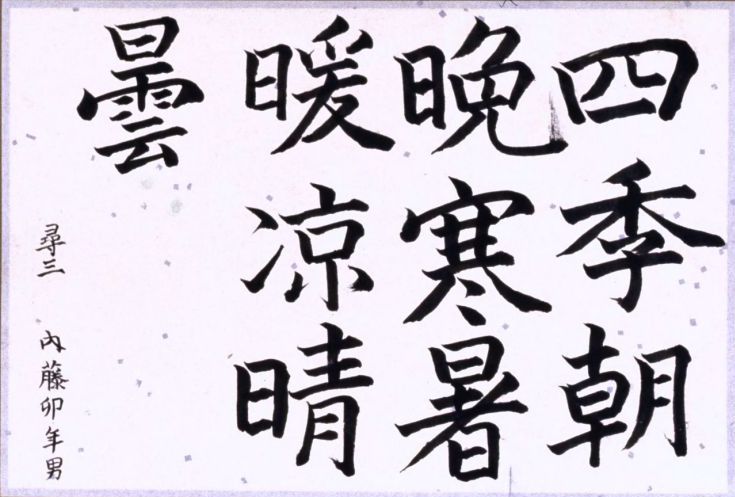 四季朝
晩寒暑
暖凉晴
曇
尋三 内藤卯年男